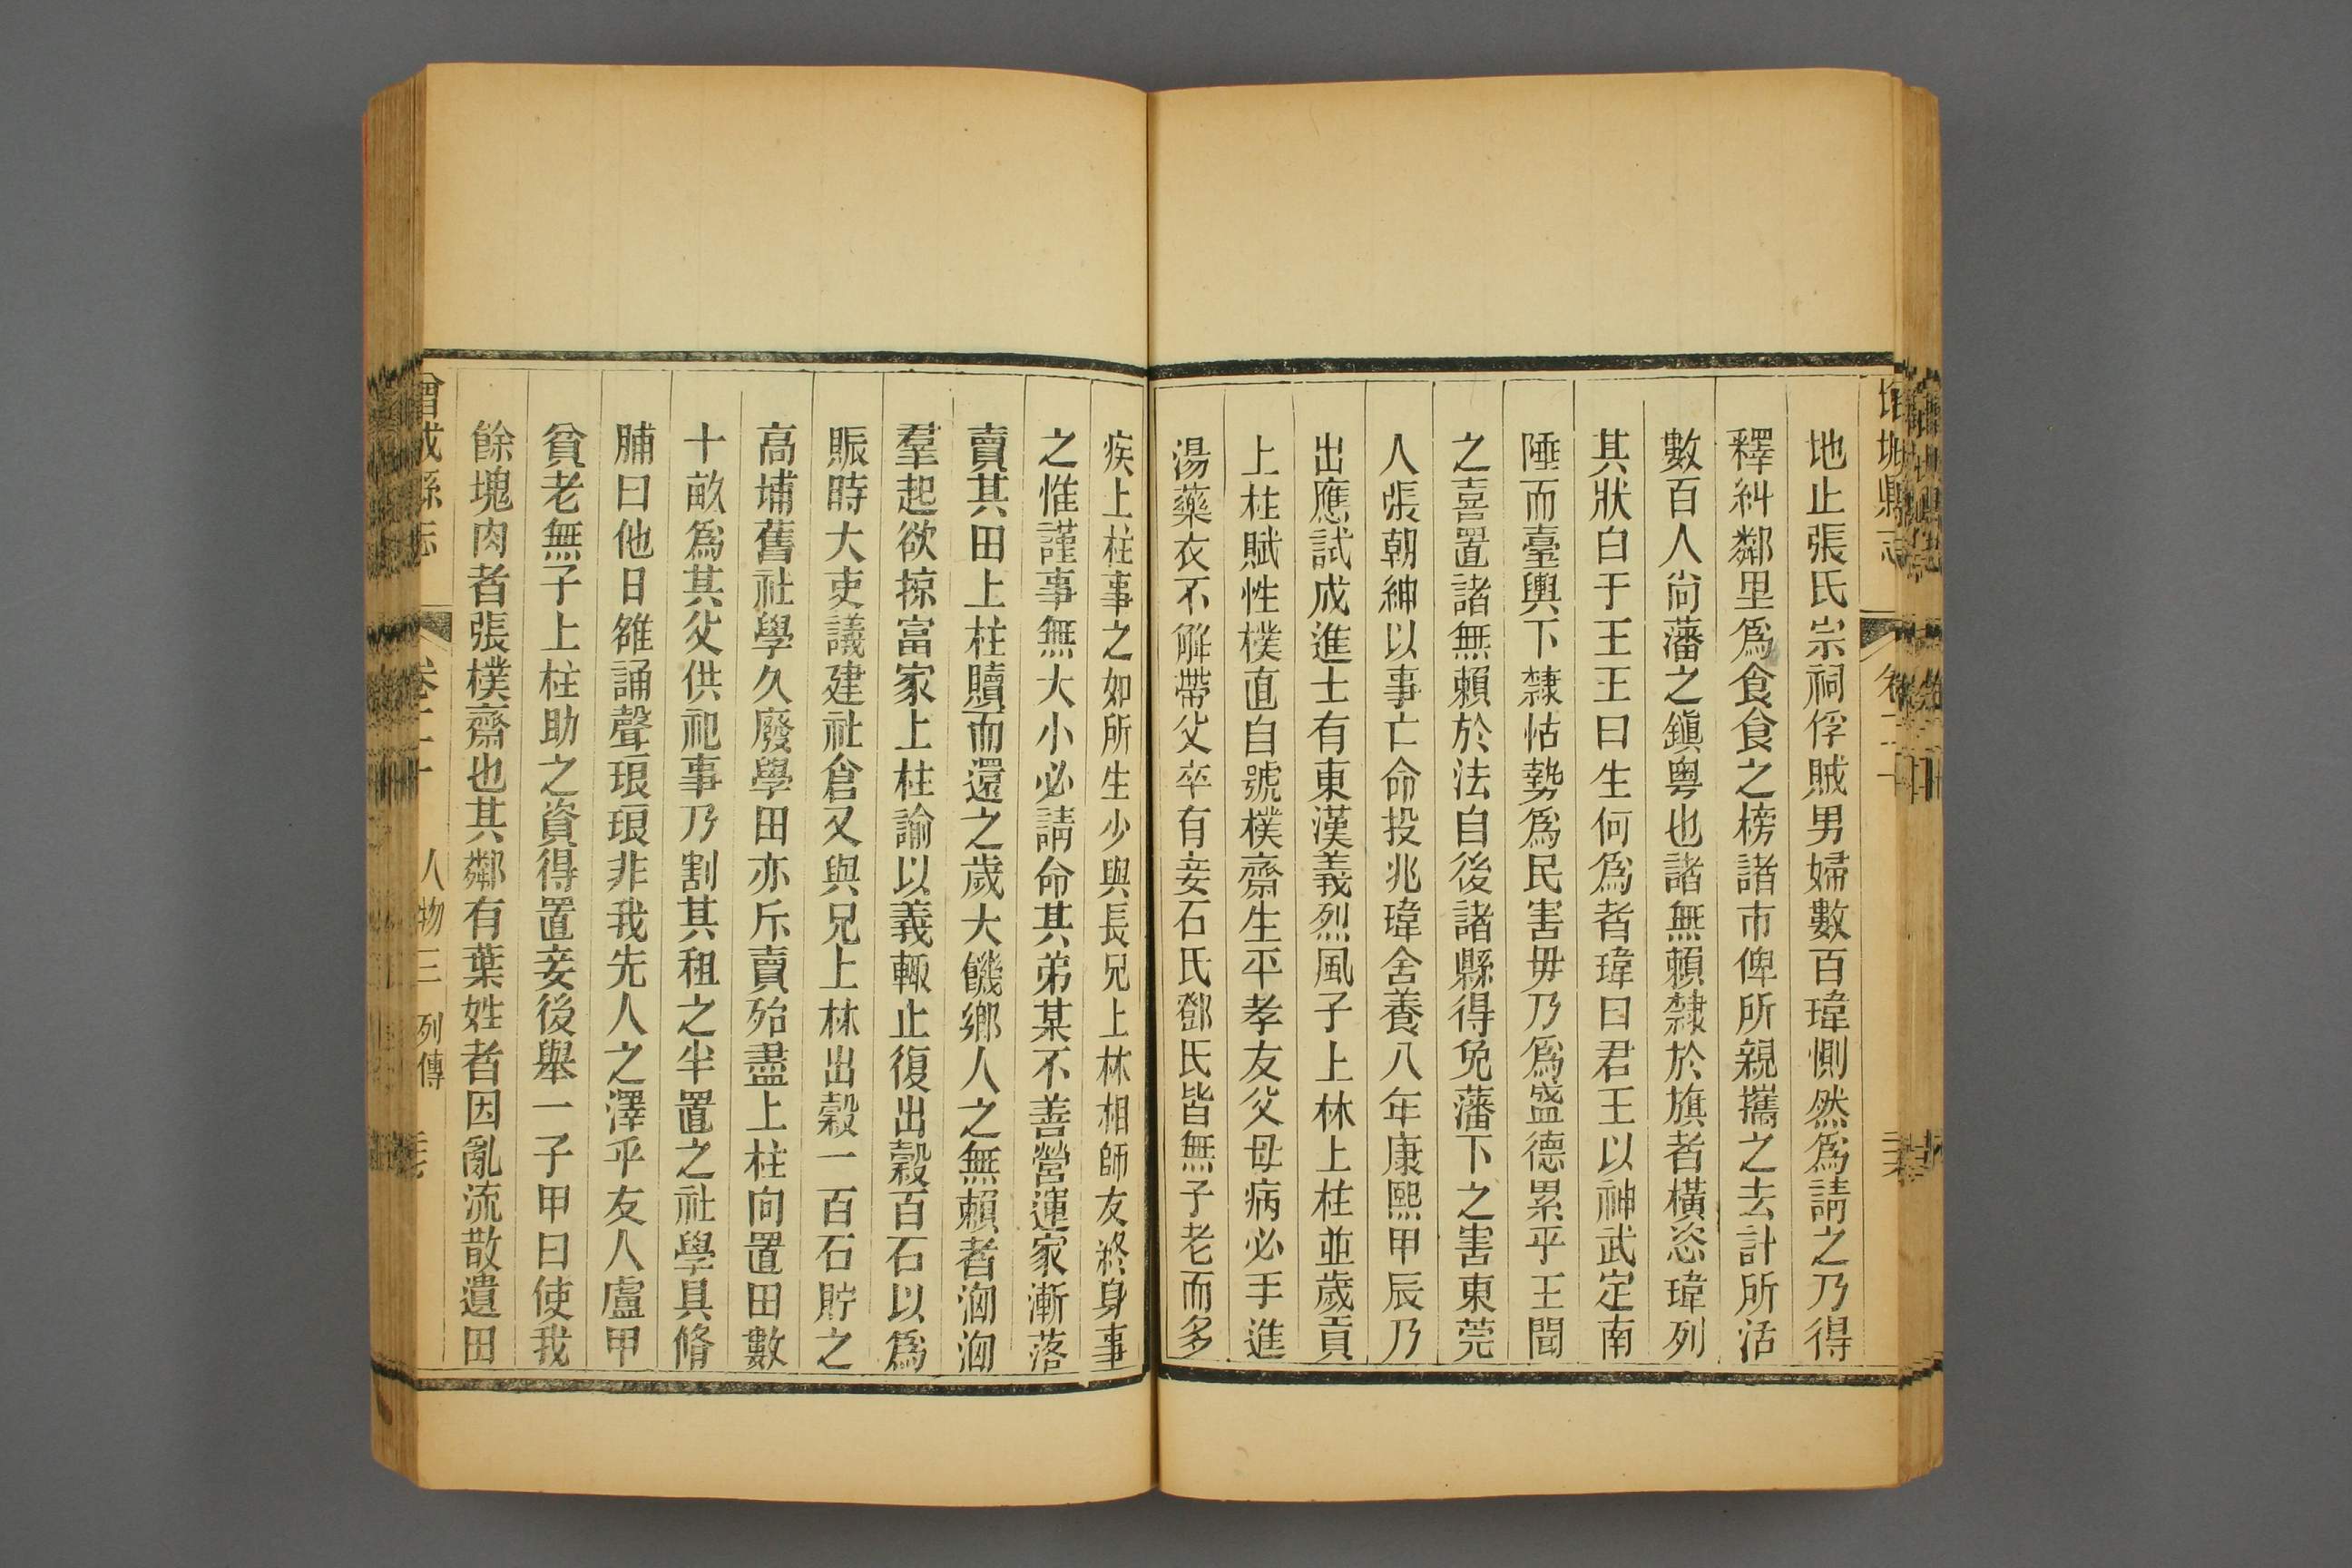 地止張氏宗祠俘賊男婦數百瑋惻然爲請之乃得
釋糾鄰里爲食食之榜諸市俾所親攜之去計所活
數百人尙藩之鎭粤也諸無賴隸於旗者橫恣瑋列
其狀白于王王曰生何爲者瑋曰君王以神武定南
陲而臺輿下隸怙勢爲民害毋乃爲盛德累乎王聞
之喜置諸無賴於法自後諸縣得免藩下之害東莞
人張朝紳以事亡命投兆瑋舍養八年康熙甲辰乃
出應試成進士有東漢義烈風子上林上柱並歲貢
上柱賦性樸直自號樸齋生平孝友父母病必手進
湯藥衣不解帶父卒有妾石氏鄧氏皆無子老而多
疾上柱事之如所生少與長兄上林相師友終身事
之惟謹事無大小必請命其弟某不善營運家漸落
賣其田上柱贖而還之歲大饑鄉人之無賴者洶洶
羣起欲掠富家上柱諭以義輙止復出穀百石以爲
賑時大吏議建社倉又與兄上林出穀一百石貯之
高埔舊社學久廢學田亦斥賣殆盡上柱向置田數
十畝爲其父供祀事乃割其租之半置之社學具脩
脯曰他日雒誦聲琅琅非我先人之澤乎友人盧甲
貧老無子上柱助之資得置妾後舉一子甲曰使我
餘塊肉者張樸齋也其鄰有葉姓者因亂流散遺田
曾城縣志 卷二十 人物三 列傳